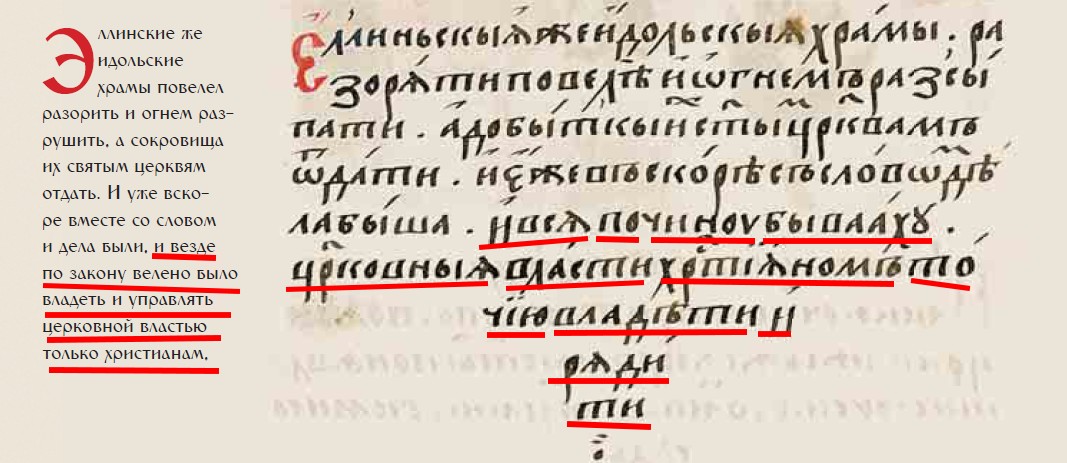 Эллинские же
идольские
храмы повелел
разорить и огнем раз-
рушить, а сокровища
их святым церквям
отдать. И уже вско-
ре вместе со словом
и дела были, и везде
по закону велено было
владеть и управлять
церковной властью
только христианам.
Єлланньскыіѧ же и҆дольскыѧ храмы . ра
зорѧти повелѣ и҆ ѡгнемъ разсы
пати . а добыткы и҆
ѿдати . и҆ оуже въскорѣ съ словѡⷨ дѣ
ла быша . и҆ всѧ по чиноу бываахꙋ .
црковныіѧ власти хртіѧномъ то
чїю владѣти и҆
рѧди
ти